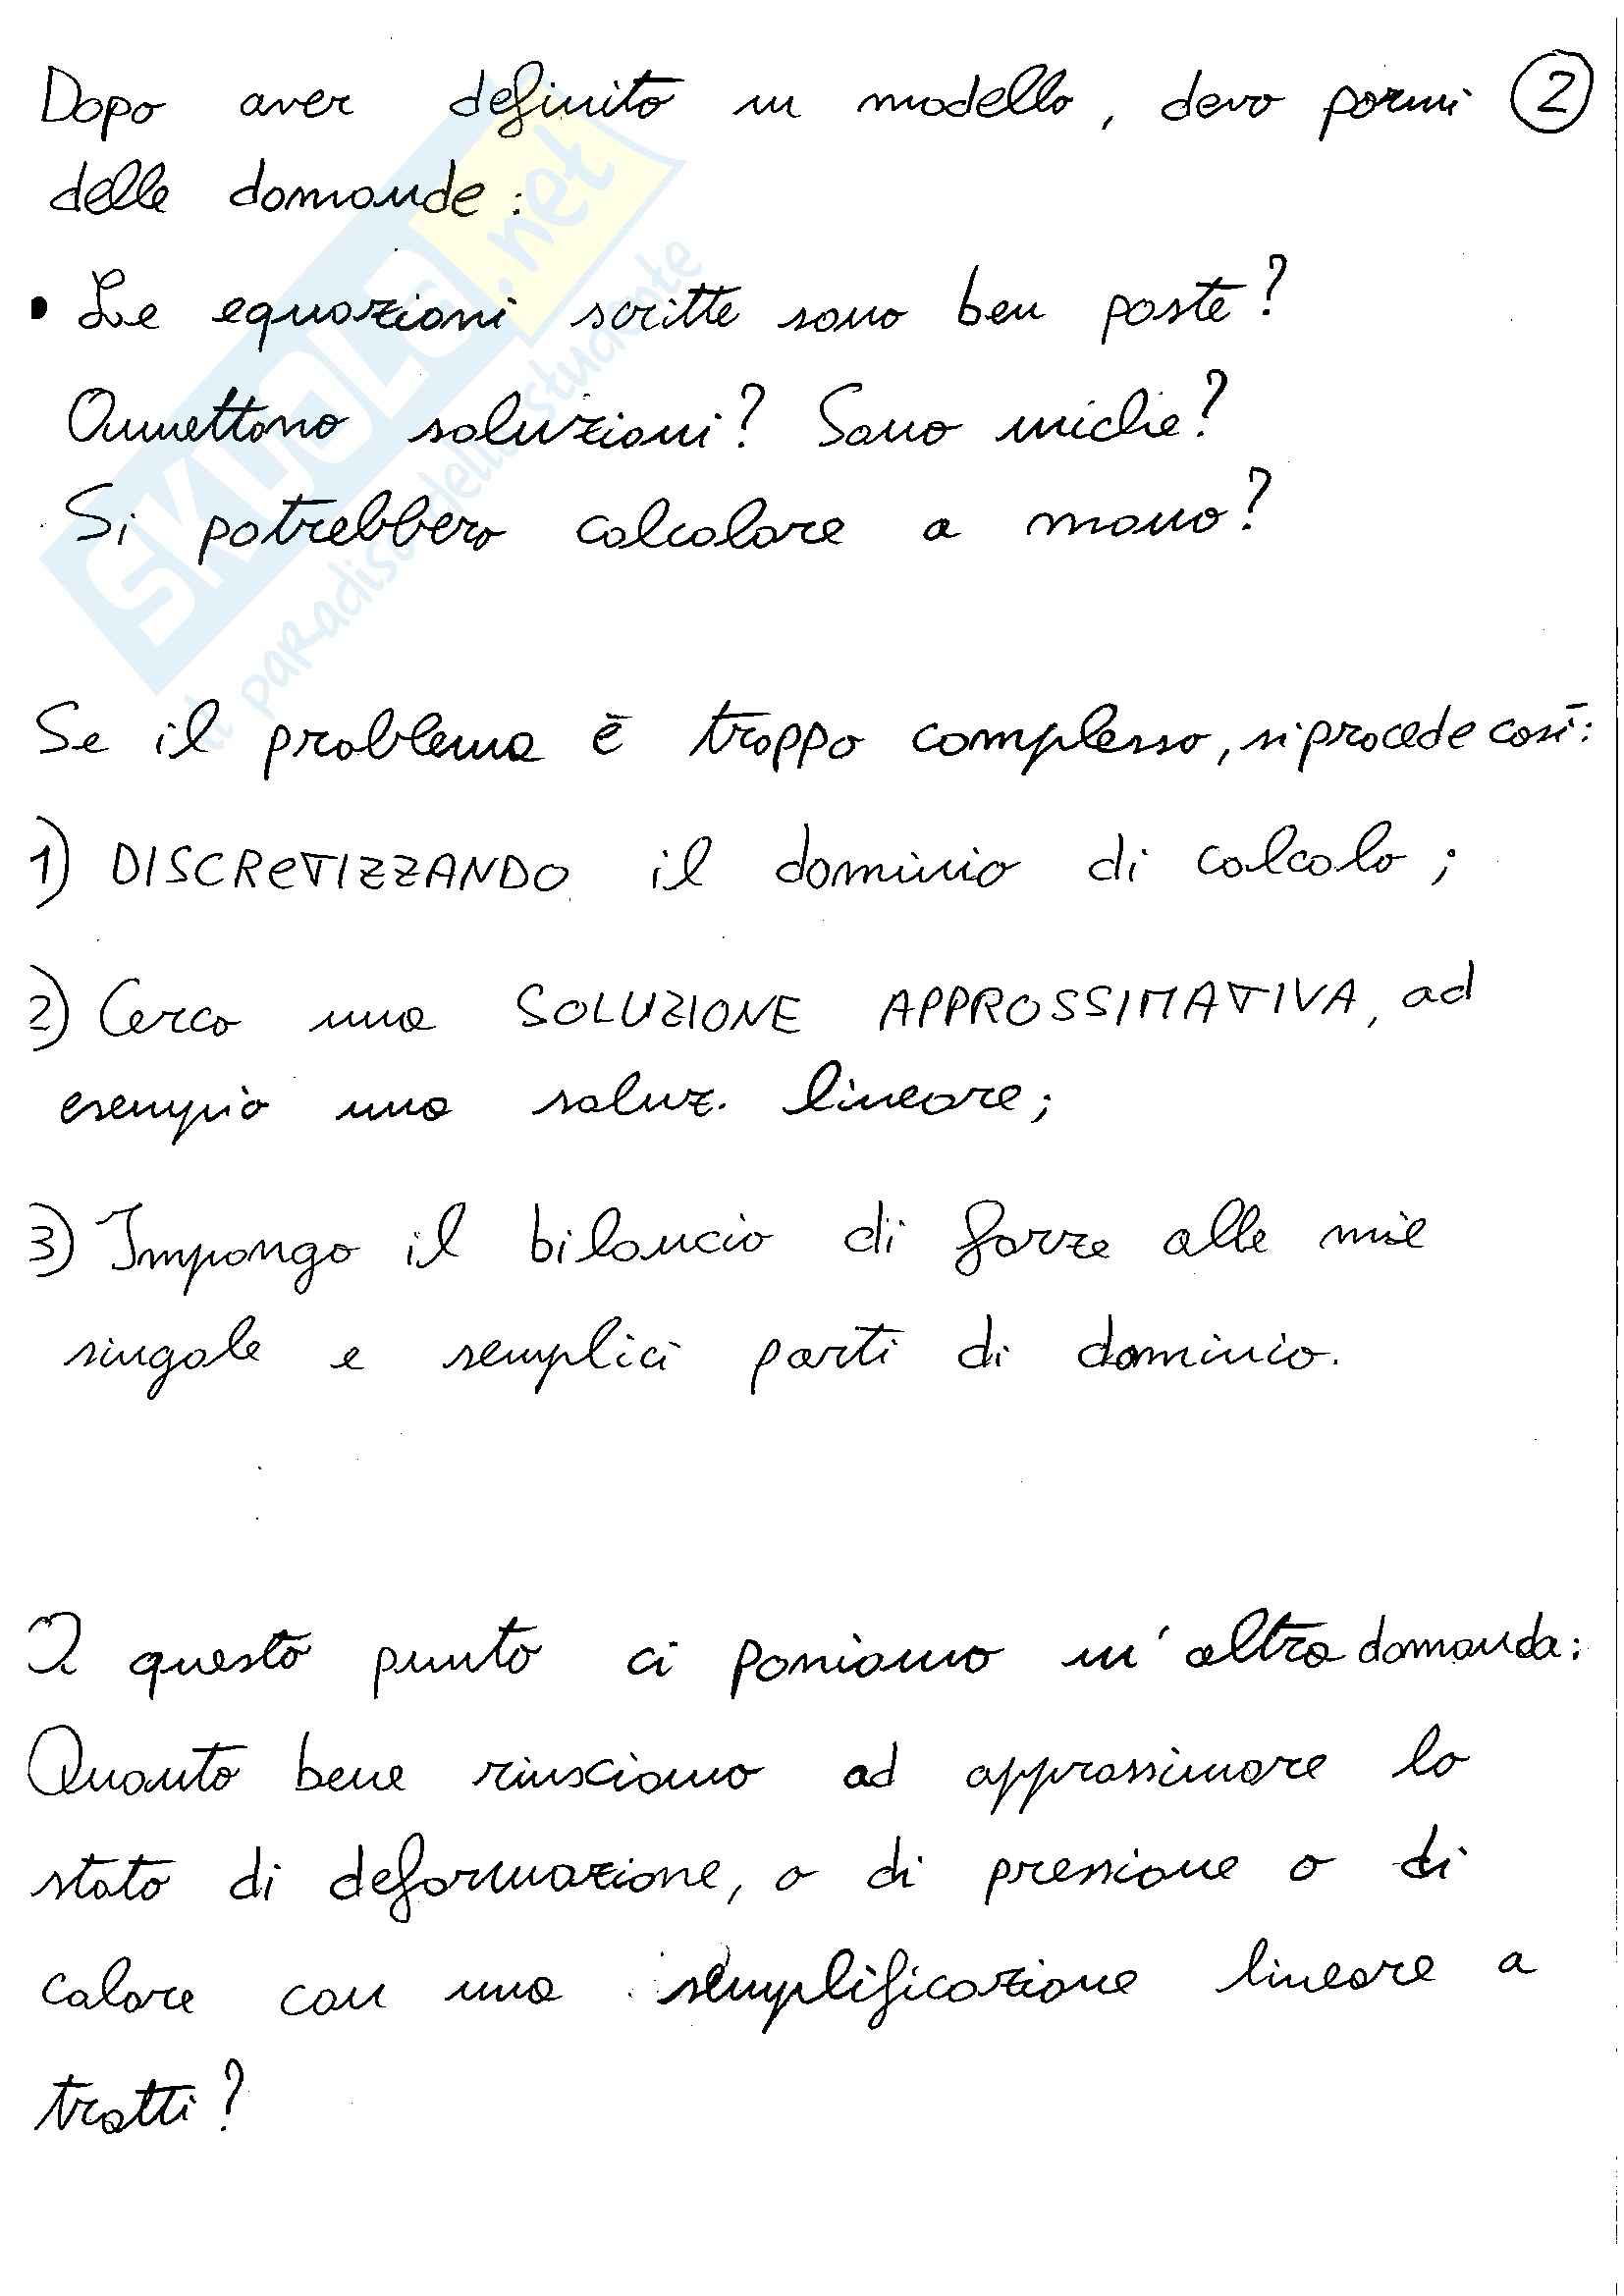 Dopo aver definito un modello, devo pormi ②
delle domande:
• Le equazioni scritte sono ben poste?
Ammettono soluzioni? Sono uniche?
Si potrebbero calcolare a mano?
Se il problema è troppo complesso, si procede così:
1) DISCRETIZZANDO il dominio di calcolo;
2) Cerco una SOLUZIONE APPROSSIMATIVA, ad
esempio una soluz. lineare;
3) Impongo il bilancio di forze alle mie
singole e semplici parti di dominio.
A questo punto ci poniamo un'altra domanda:
Quanto bene riusciamo ad approssimare lo
stato di deformazione, o di pressione o di
calore con una semplificazione lineare a
tratti?
SKUOLA.net
il paradiso dello studente